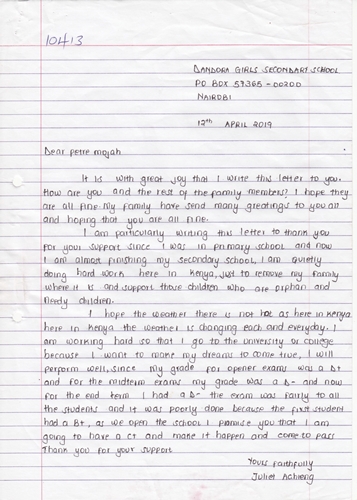 10413
DANDORA GIRLS SECONDARY SCHOOL
PO BOX 57365 - 00200
NAIROBI
12th APRIL 2019
Dear petre mojah
It is with great joy that I write this letter to you.
How are you and the rest of the family members? I hope they
are all fine. My family have send many greetings to you all
and hoping that you are all fine.
I am particularly writing this letter to thank you
for your support since I was in primary school and now
I am almost finishing my secondary school, I am quietly
doing hard work here in Kenya, just to remove my family
where it is and support those children who are orphan and
needy children.
I hope the weather there is not hot as here in Kenya
here in Kenya the weather is changing each and everyday. I
am working hard so that I go to the university or college
because I want to make my dreams to come true, I will
perform well, since my grade for opener exams was a D+
and for the midterm exams my grade was a D- and now
for the end term I had a D- the exam was fairly to all
the students and it was poorly done because the first student
had a B+, as we open the school I promise you that I am
going to have a C+ and make it happen and come to pass
Thank you for your support
Yours faithfully
Juliet Achieng